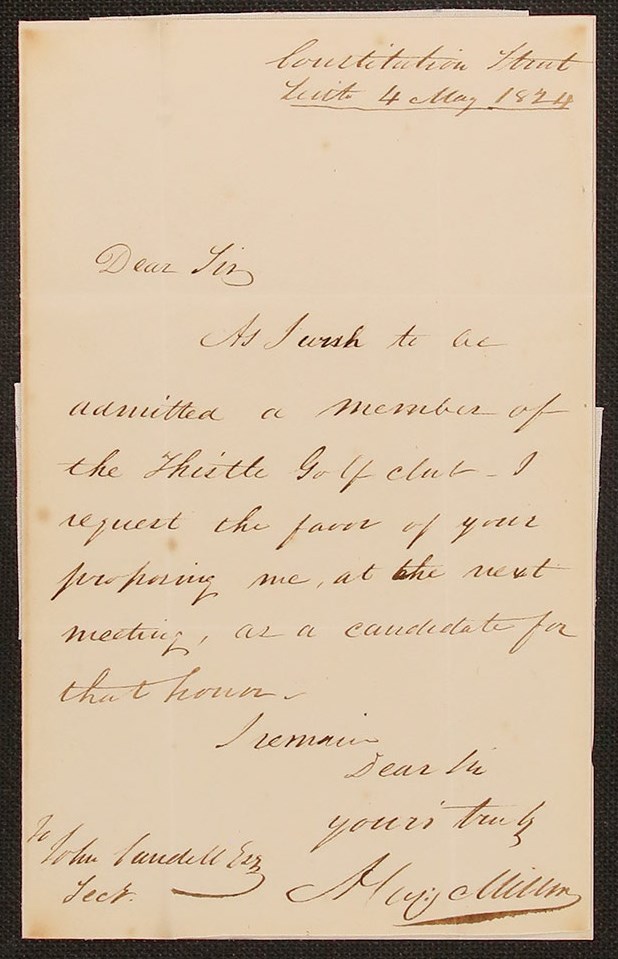 Constitution Street
Leith 4 May 1824
Dear Sir
As I wish to be
admitted a member of
the Thistle Golf club - I
request the favor of your
proposing me, at the next
meeting, as a candidate for
that honor -
I remain
Dear Sir
yours truly
To
John Cundell Esq
Secy.
Miller